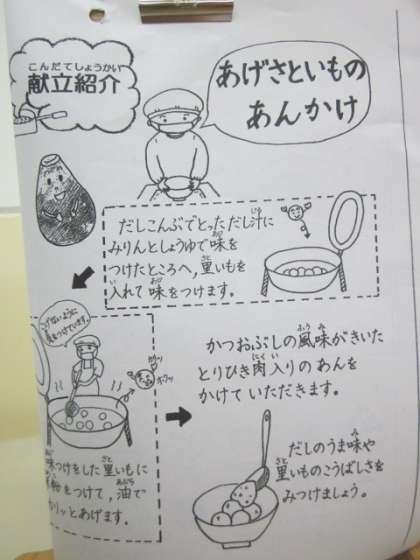 こんだてしょうかい
献立紹介
あげさといもの
あんかけ
だしこんぶでとっただし汁に
みりんとしょうゆで味を
つけたところへ,里いもを
入れて味をつけます。
こげないように
気をつけています。
味つけをした里いもに
をつけて,油で
リッとあげます。
かつおぶしの風味がきいた
とりひき肉入りのあんを
かけていただきます。
だしのうま味や
里いものこうばしさを
みつけましょう。